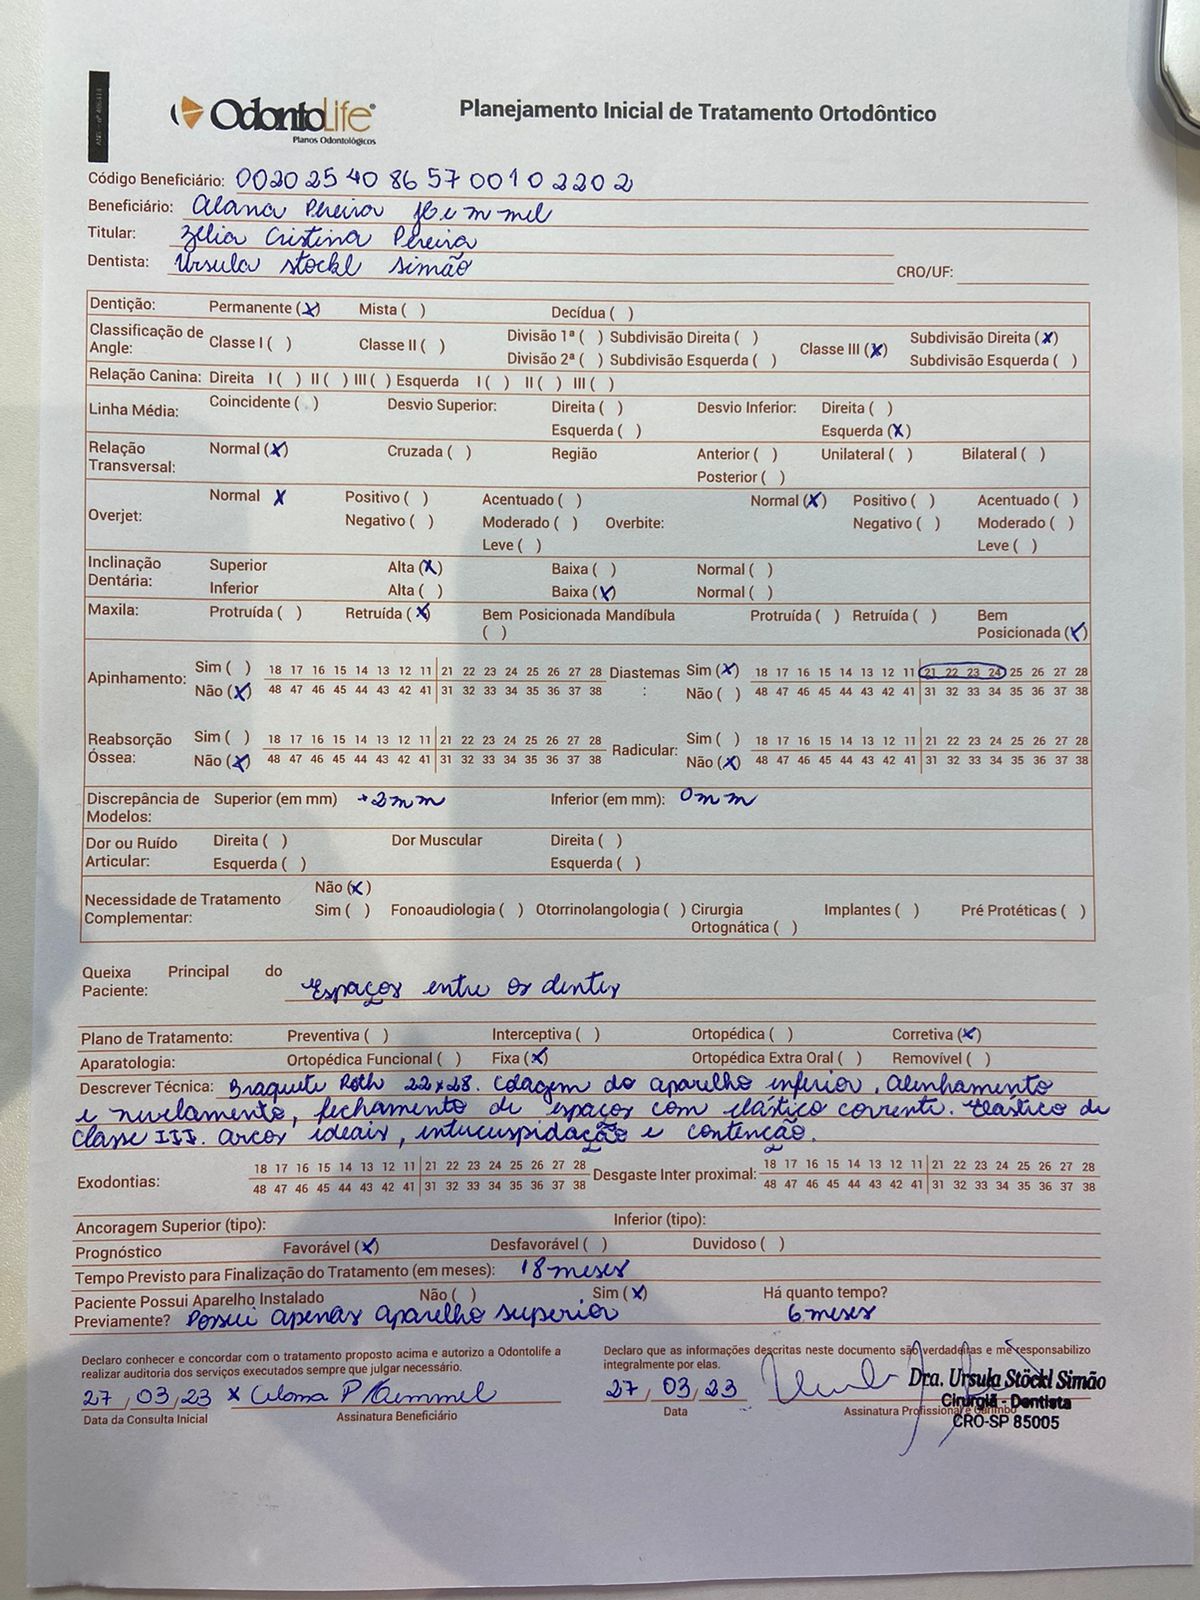 OdontoLife®
Planos Odontológicos
Planejamento Inicial de Tratamento Ortodôntico
Código Beneficiário: 00202540865700102202
Beneficiário: Alana Pereira
Titular: Zélia Cristina Pereira
Dentista: Ursula Stockl Simão CRO/UF:
Dentição: Permanente (X) Mista ( ) Decídua ( )
Classificação de Angle: Classe I ( ) Classe II ( ) Divisão 1ª ( ) Subdivisão Direita ( ) Classe III (X) Subdivisão Direita (X)
Divisão 2ª ( ) Subdivisão Esquerda ( ) Subdivisão Esquerda ( )
Relação Canina: Direita I ( ) II ( ) III ( ) Esquerda I ( ) II ( ) III ( )
Linha Média: Coincidente ( ) Desvio Superior: Direita ( ) Desvio Inferior: Direita ( )
Esquerda ( ) Esquerda (X)
Relação Transversal: Normal (X) Cruzada ( ) Região Anterior ( ) Unilateral ( ) Bilateral ( )
Posterior ( )
Overjet: Normal X Positivo ( ) Acentuado ( ) Overbite: Normal (X) Positivo ( ) Acentuado ( )
Negativo ( ) Moderado ( ) Negativo ( ) Moderado ( )
Leve ( ) Leve ( )
Inclinação Dentária: Superior Alta (X) Baixa ( ) Normal ( )
Inferior Alta ( ) Baixa (X) Normal ( )
Maxila: Protruída ( ) Retruída (X) Bem Posicionada ( ) Mandíbula Protruída ( ) Retruída ( ) Bem Posicionada (X)
Apinhamento: Sim ( ) 18 17 16 15 14 13 12 11 21 22 23 24 25 26 27 28 Diastemas: Sim (X) 18 17 16 15 14 13 12 11 21 22 23 24 25 26 27 28
Não (X) 48 47 46 45 44 43 42 41 31 32 33 34 35 36 37 38 Não ( ) 48 47 46 45 44 43 42 41 31 32 33 34 35 36 37 38
Reabsorção Óssea: Sim ( ) 18 17 16 15 14 13 12 11 21 22 23 24 25 26 27 28 Radicular: Sim ( ) 18 17 16 15 14 13 12 11 21 22 23 24 25 26 27 28
Não (X) 48 47 46 45 44 43 42 41 31 32 33 34 35 36 37 38 Não (X) 48 47 46 45 44 43 42 41 31 32 33 34 35 36 37 38
Discrepância de Modelos: Superior (em mm) +2mm Inferior (em mm): 0mm
Dor ou Ruído Articular: Direita ( ) Dor Muscular Direita ( )
Esquerda ( ) Esquerda ( )
Necessidade de Tratamento Complementar: Não (X)
Sim ( ) Fonoaudiologia ( ) Otorrinolangologia ( ) Cirurgia Ortognática ( ) Implantes ( ) Pré Protéticas ( )
Queixa Principal do Paciente: Espaços entre os dentes
Plano de Tratamento: Preventiva ( ) Interceptiva ( ) Ortopédica ( ) Corretiva (X)
Aparatologia: Ortopédica Funcional ( ) Fixa (X) Ortopédica Extra Oral ( ) Removível ( )
Descrever Técnica: Braquete Roth 22x28. Colagem do aparelho inferior, alinhamento
e nivelamento, fechamento de espaços com elástico corrente. Elástico de
classe III. arcos ideais, intercuspidação e contenção.
Exodontias: 18 17 16 15 14 13 12 11 21 22 23 24 25 26 27 28 Desgaste Inter proximal: 18 17 16 15 14 13 12 11 21 22 23 24 25 26 27 28
48 47 46 45 44 43 42 41 31 32 33 34 35 36 37 38 48 47 46 45 44 43 42 41 31 32 33 34 35 36 37 38
Ancoragem Superior (tipo): Inferior (tipo):
Prognóstico Favorável (X) Desfavorável ( ) Duvidoso ( )
Tempo Previsto para Finalização do Tratamento (em meses): 18 meses
Paciente Possui Aparelho Instalado Não ( ) Sim (X) Há quanto tempo?
Previamente? Possui apenas aparelho superior 6 meses
Declaro conhecer e concordar com o tratamento proposto acima e autorizo a Odontolife a
realizar auditoria dos serviços executados sempre que julgar necessário.
Declaro que as informações descritas neste documento são verdadeiras e me responsabilizo
integralmente por elas.
27/03/23 X
Data da Consulta Inicial Assinatura Beneficiário
27/03/23
Data Assinatura Profissional e Carimbo
Dra. Ursula Stöckl Simão
Cirurgiã - Dentista
CRO-SP 85005